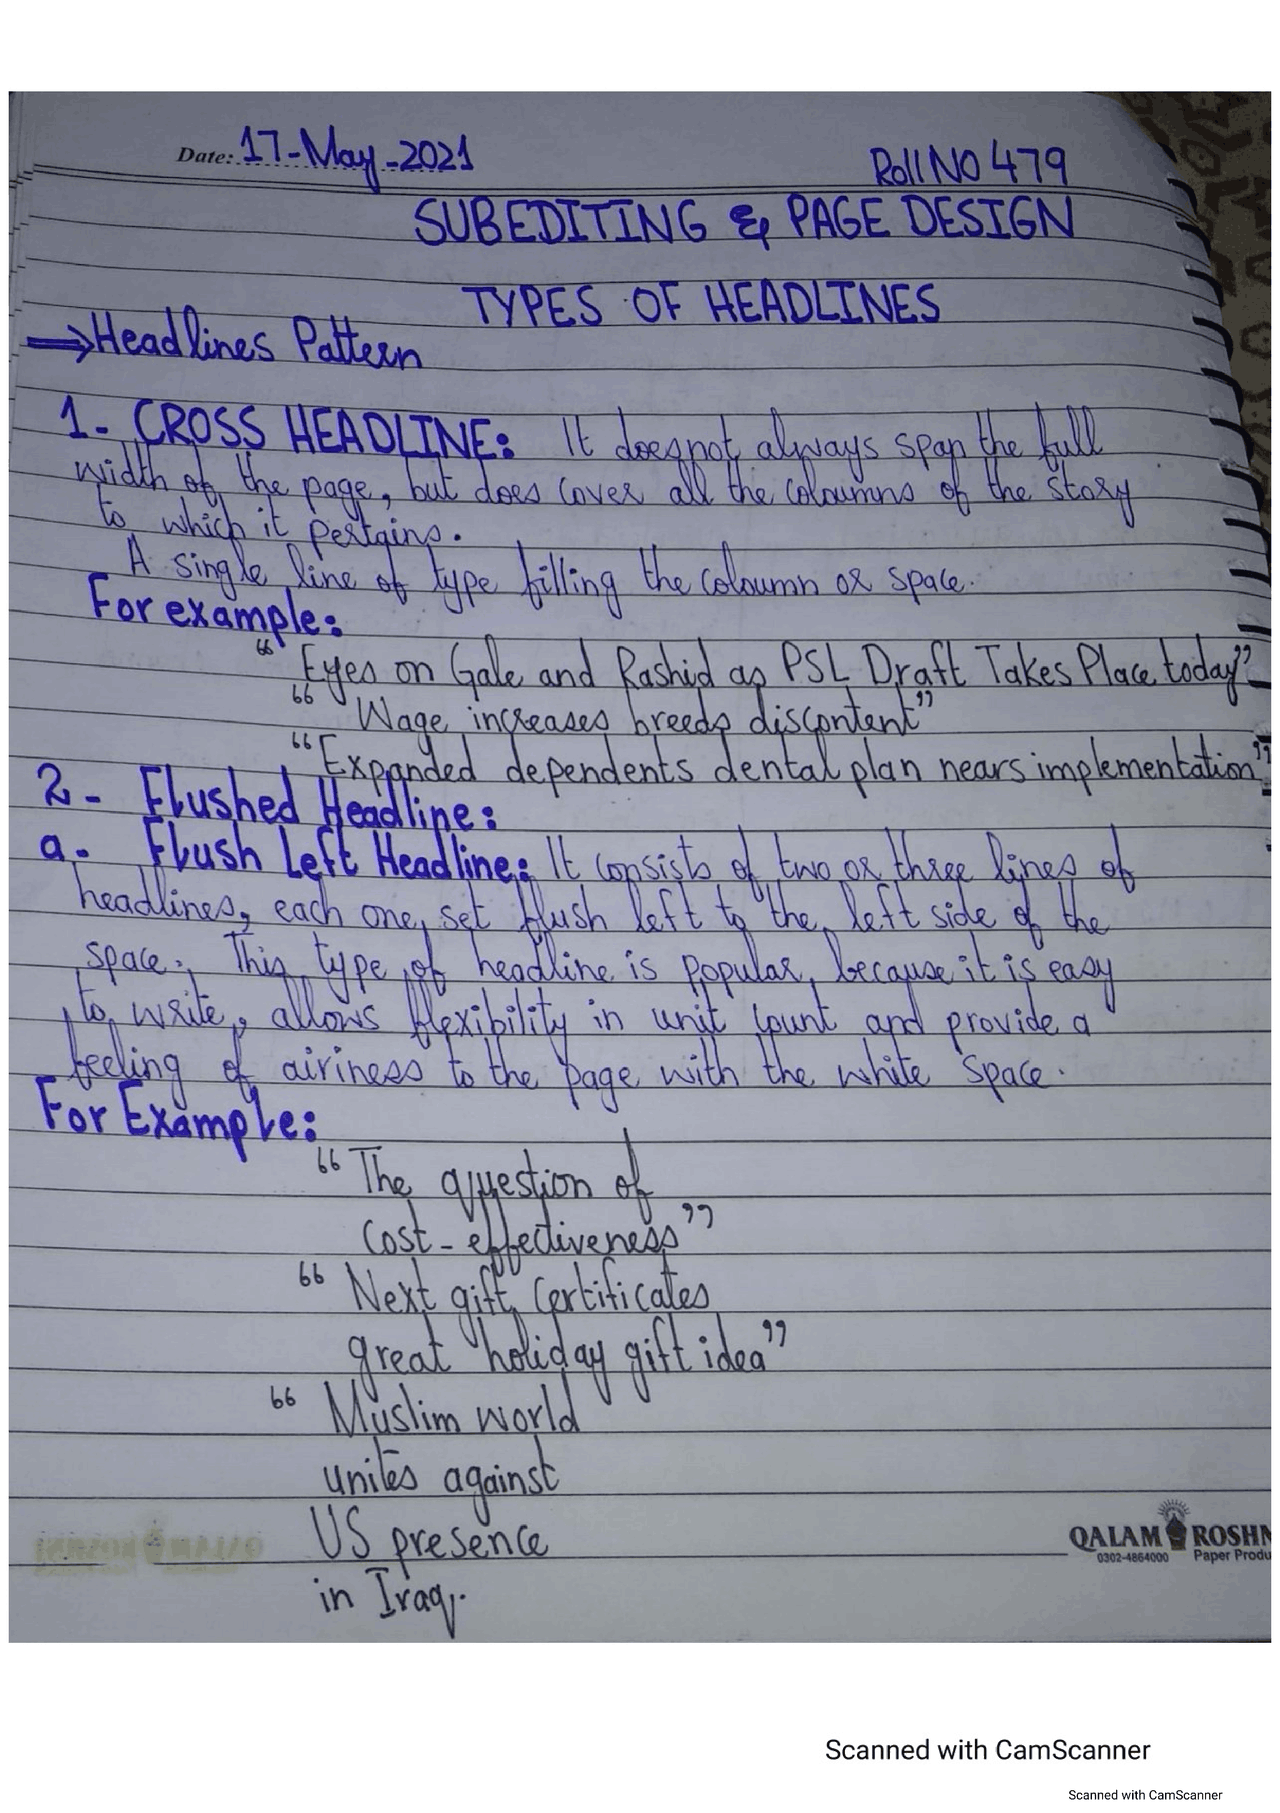 Date: 17-May-2021
Roll NO 479
SUBEDITING & PAGE DESIGN
TYPES OF HEADLINES
⇒ Headlines Pattern
1- CROSS HEADLINE: It doesnot always span the full
width of the page, but does cover all the coloumns of the story
to which it pertains.
A single line of type filling the coloumn or space.
For example:
“Eyes on Gale and Rashid as PSL Draft Takes Place today”
“Wage increases breeds discontent”
“Expanded dependents dental plan nears implementation”
2- Flushed Headline:
a- Flush Left Headline: It consists of two or three lines of
headlines, each one, set flush left to the left side of the
space. This type of headline is popular because it is easy
to write, allows flexibility in unit count and provide a
feeling of airiness to the page with the white space.
For Example:
“The question of
cost-effectiveness”
“Next gift certificates
great holiday gift idea”
“Muslim world
unites against
US presence
in Iraq.
QALAM ROSHN
0302-4864000 Paper Produ
Scanned with CamScanner
Scanned with CamScanner